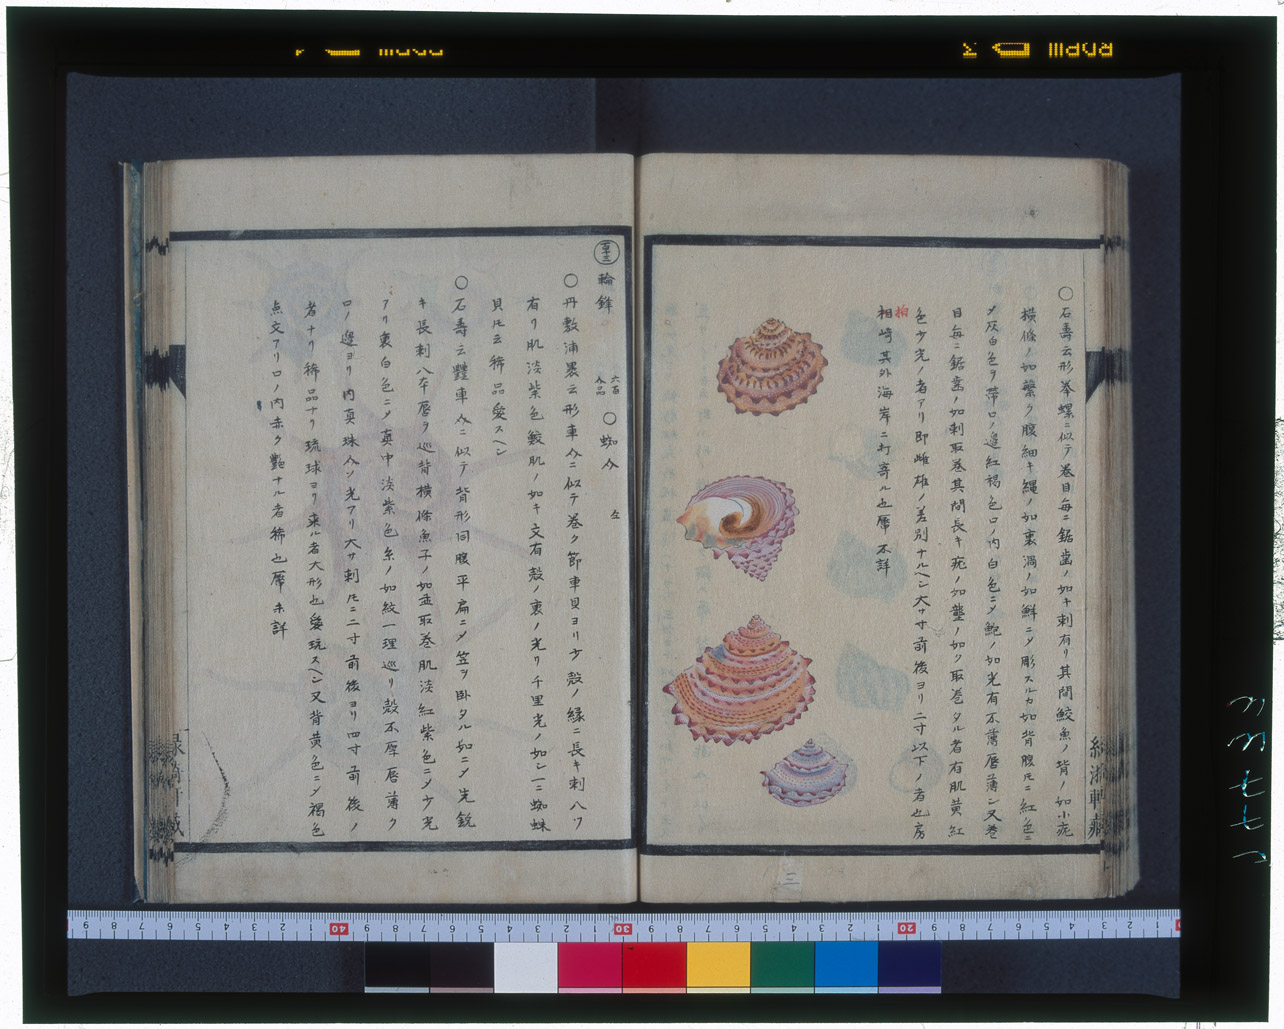 ○石壽云形拳螺ニ似テ巻目毎ニ鋸歯ノ如キ刺有リ其間鮫魚ノ背ノ如小疣
横條ノ如繁ク腹細キ縄ノ如裏渦ノ如鮮ニメ彫スルカ如背腹氏ニ紅色ニ
メ灰白色ヲ帯ロノ邉紅褐色ロノ内白色ニメ鮑ノ如光有不薄唇薄シ又巻
目毎ニ鋸歯ノ如刺取巻其間長キ疣ノ如壟ノ如ク取巻タル者有肌黄紅
色少光ノ者アリ即雌雄ノ差別ナルヘシ大サ寸前後ヨリ二寸以下ノ者也房
相﨑其外海岸ニ打寄ル也Ꮿ不詳
柏
三
百十三
輪鋒 六百 ○蜘介
○丹敷浦裏云形車介ニ似テ巻ク節車貝ヨリ少殻ノ縁ニ長キ刺八ツ
有リ肌淡紫色鮫肌ノ如キ文有殻ノ裏ノ光リ千里光ノ如シ一ニ蜘蛛
貝氏云稀品愛スヘシ
○石壽云豔車介ニ似テ背形同腹平扁ニメ笠ヲ臥タル如ニメ先鋭
キ長刺八本唇ヲ巡背横條魚子ノ如並取巻肌淡紅紫色ニメ少光
アリ裏白色ニメ真中淡紫色糸ノ如紋一理巡リ殻不厚唇薄ク
ロノ邉ヨリ内真珠介ノ光アリ大サ刺氏ニ二寸前後ヨリ四寸前後ノ
者ナリ稀品ナリ琉球ヨリ来ル者大形也愛玩スヘシ又背黄色ニメ褐色
点文アリロノ内赤ク艶ナル者稀也Ꮿ未詳